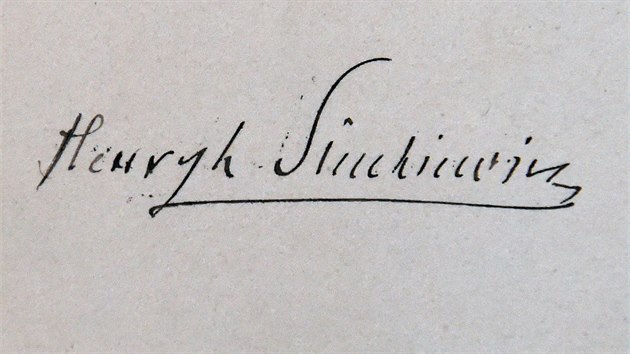 Henryk Sienkiewicz